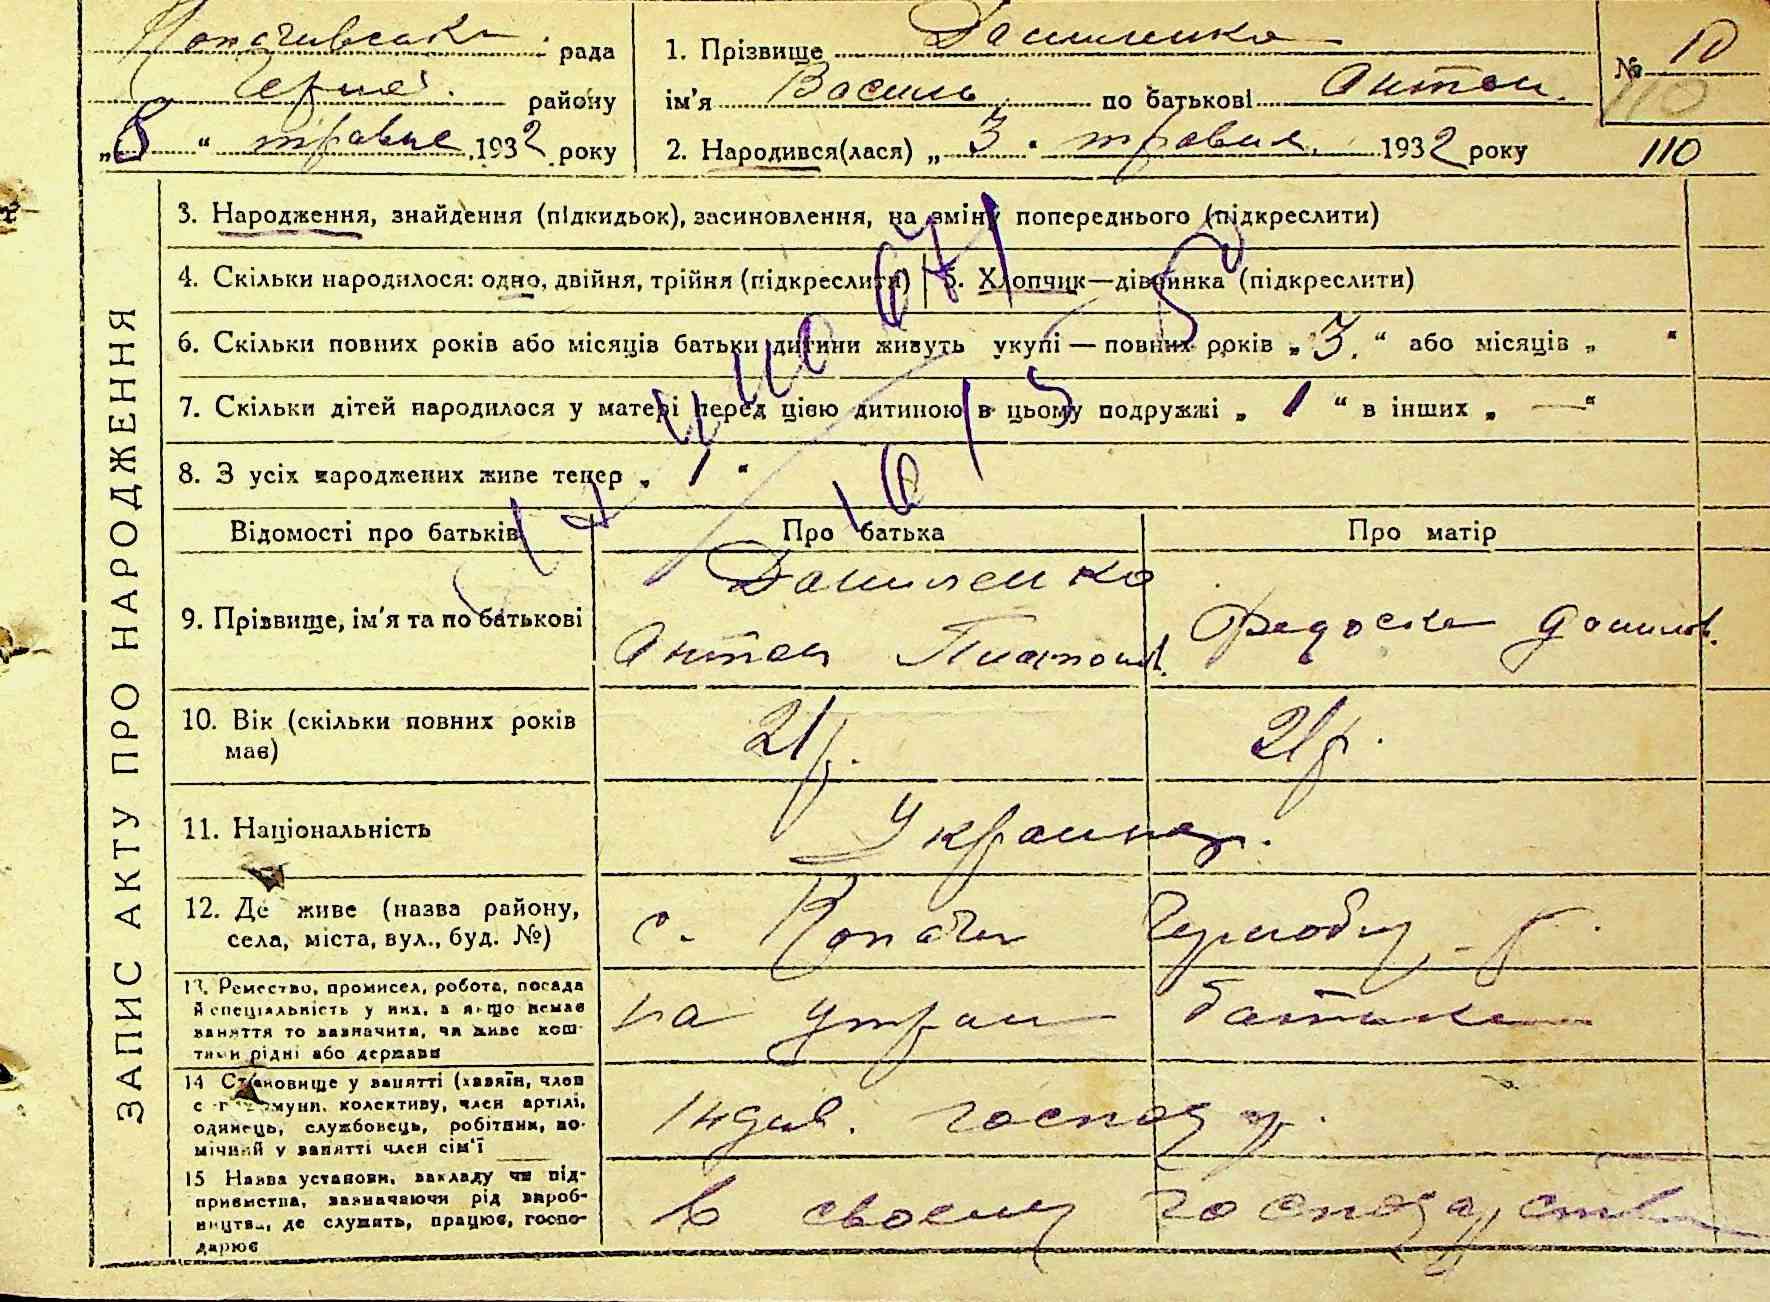 Копачівська рада
району
„8“ травня 1932 року
1. Прізвище Даниленко
ім'я Василь по батькові Антон.
2. Народився(лася) „3“ травня 1932 року
№ 10
110
110
ЗАПИС АКТУ ПРО НАРОДЖЕННЯ
3. Народження, знайдення (підкидьок), засиновлення, на зміну попереднього (підкреслити)
4. Скільки народилося: одно, двійня, трійня (підкреслити) 5. Хлопчик—дівчинка (підкреслити)
6. Скільки повних років або місяців батьки дитини живуть укупі — повних років „3.“ або місяців „ “
7. Скільки дітей народилося у матері перед цією дитиною в цьому подружжі „1“ в інших „—“
8. З усіх народжених живе тепер „1“
Відомості про батьків Про батька Про матір
9. Прізвище, ім'я та по батькові
Даниленко
Антон Федоска Данилов.
10. Вік (скільки повних років має) 21р. 21р.
11. Національність Україн.
12. Де живе (назва району, села, міста, вул., буд. №) с. Копачи
13. Ремество, промисел, робота, посада
й спеціяльність у них, а якщо немає
заняття то зазначити, чи живе кош-
тами рідні або держави
на утрам батьків
14 Становище у занятті (хазяїн, член
с.-г. комуни, колективу, член артілі,
одинець, службовець, робітник, по-
мічний у занятті член сім'ї
індив. господар.
15 Назва установи, закладу чи під-
приємства, зазначаючи рід вироб-
ництва, де служить, працює, госпо-
дарює
в своему господарстві